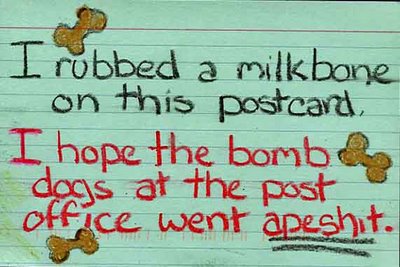 I rubbed a milkbone
on this postcard.
I hope the bomb
dogs at the post
office went apeshit.